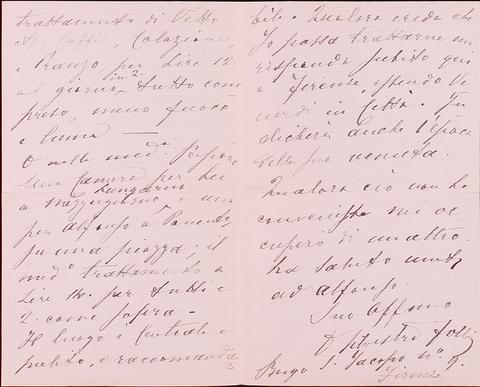 trattamento di Vitto
Colazione,
e Pranzo; per Lire 12
al giorno in 2. tutto com
preso, meno fuoco
e lume —
O nella med.ª
Una Camera per Lei
a mezzogiorno e una
Lungarno
per Alfonso a Ponente,
su una piazza; il
med.º trattamento a
Lire per tutti e
2. come sopra —
Il luogo è Centrale e
pulito, e raccomanda
bile. Qualora creda che
Io possa trattare mi
risponda subito qui
a Firenze essendo Ve
nerdi in Città. In
dicherà anche l'epoca
della sua venuta.
Qualora ciò non le
convenisse mi oc
cuperò di un altro.
La saluto unito
ad Alfonso.
Suo Affmo
Borgo S. Jacopo nº 9.
Firenze